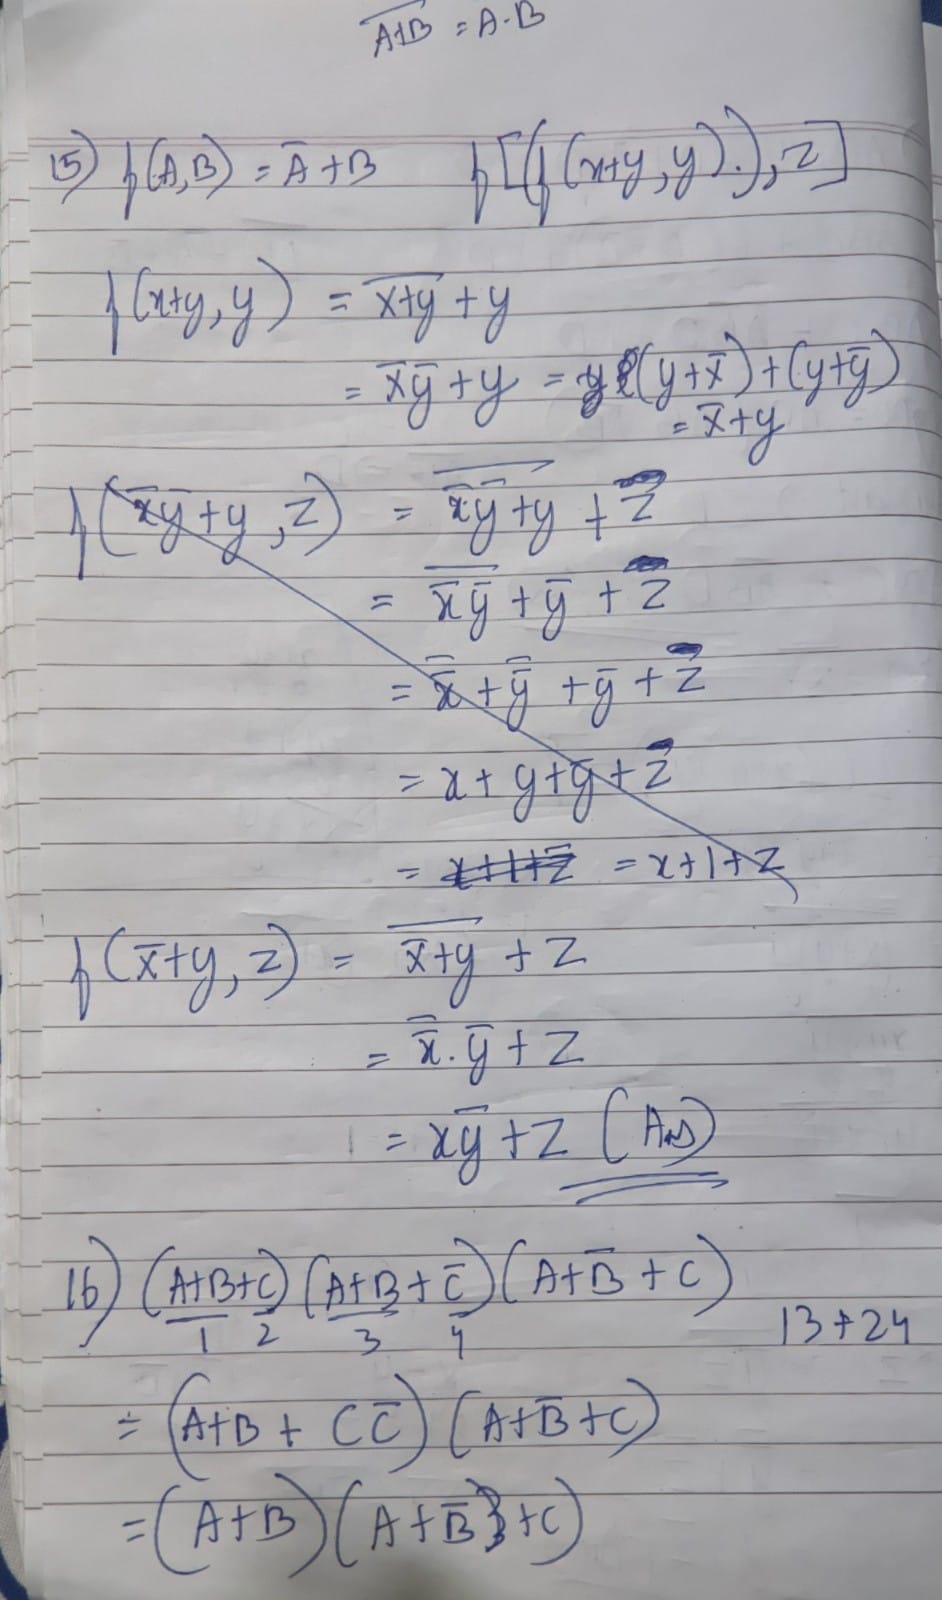 A̅+̅B̅ = A·B
15) f(A,B) = A̅ + B f[(f(x+y, y).), z]
f(x+y, y) = x̅+̅y̅ + y
= x̅y̅ + y = (y+x̅)+(y+y̅)
= x̅+y
f(x̅y̅+y, z) = x̅̅y̅̅+̅y̅ + z
= x̅̅ ̅y̅̅ + y̅ + z
= x̿ + y̿ + y̅ + z
= x + y + y̅ + z
= x+1+z̅ = x+1+z
f(x̅+y, z) = x̅̅+̅y̅ + z
= x̿.y̅ + z
= xy̅ + z (Ans)
16) (A+B+C) (A+B+C̅) (A+B̅+C)
1 2 3 4 13+24
= (A+B + CC̅) (A+B̅+C)
= (A+B) (A+B̅+C)